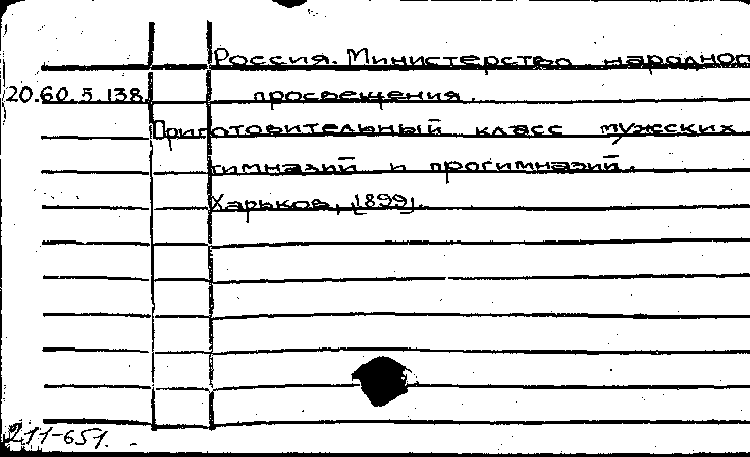 Россия. Министерство народног
20.60.5.138. просвещения.
Приготовительный класс мужских
гимназий и прогимназий.
Харьков, [1899].
211-651.